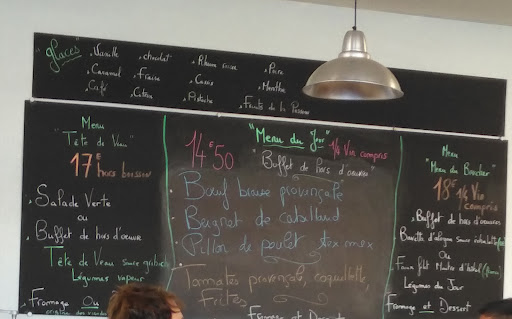 "glaces"
Vanille
chocolat
Rhum raisin
Poire
Caramel
Fraise
Cassis
Menthe
Café
Citron
Pistache
Fruits de la Passion
Menu
"Tête de Veau"
17€ hors boisson
Salade Verte
ou
Buffet de hors d'oeuvre
Tête de Veau sauce gribiche
Légumes vapeur
Fromage Ou
14€50
"Menu du Jour"
1/4 Vin compris
"Buffet de hors d'oeuvre"
Boeuf braisé provençale
Beignet de cabillaud
Pillon de poulet tex mex
Tomates provençale, coquillette,
Frites
Fromage et Dessert
Menu
"Menu du Boucher"
18€ 1/4 Vin
compris
Buffet de hors d'oeuvres
ou
Légumes du Jour
Fromage et Dessert